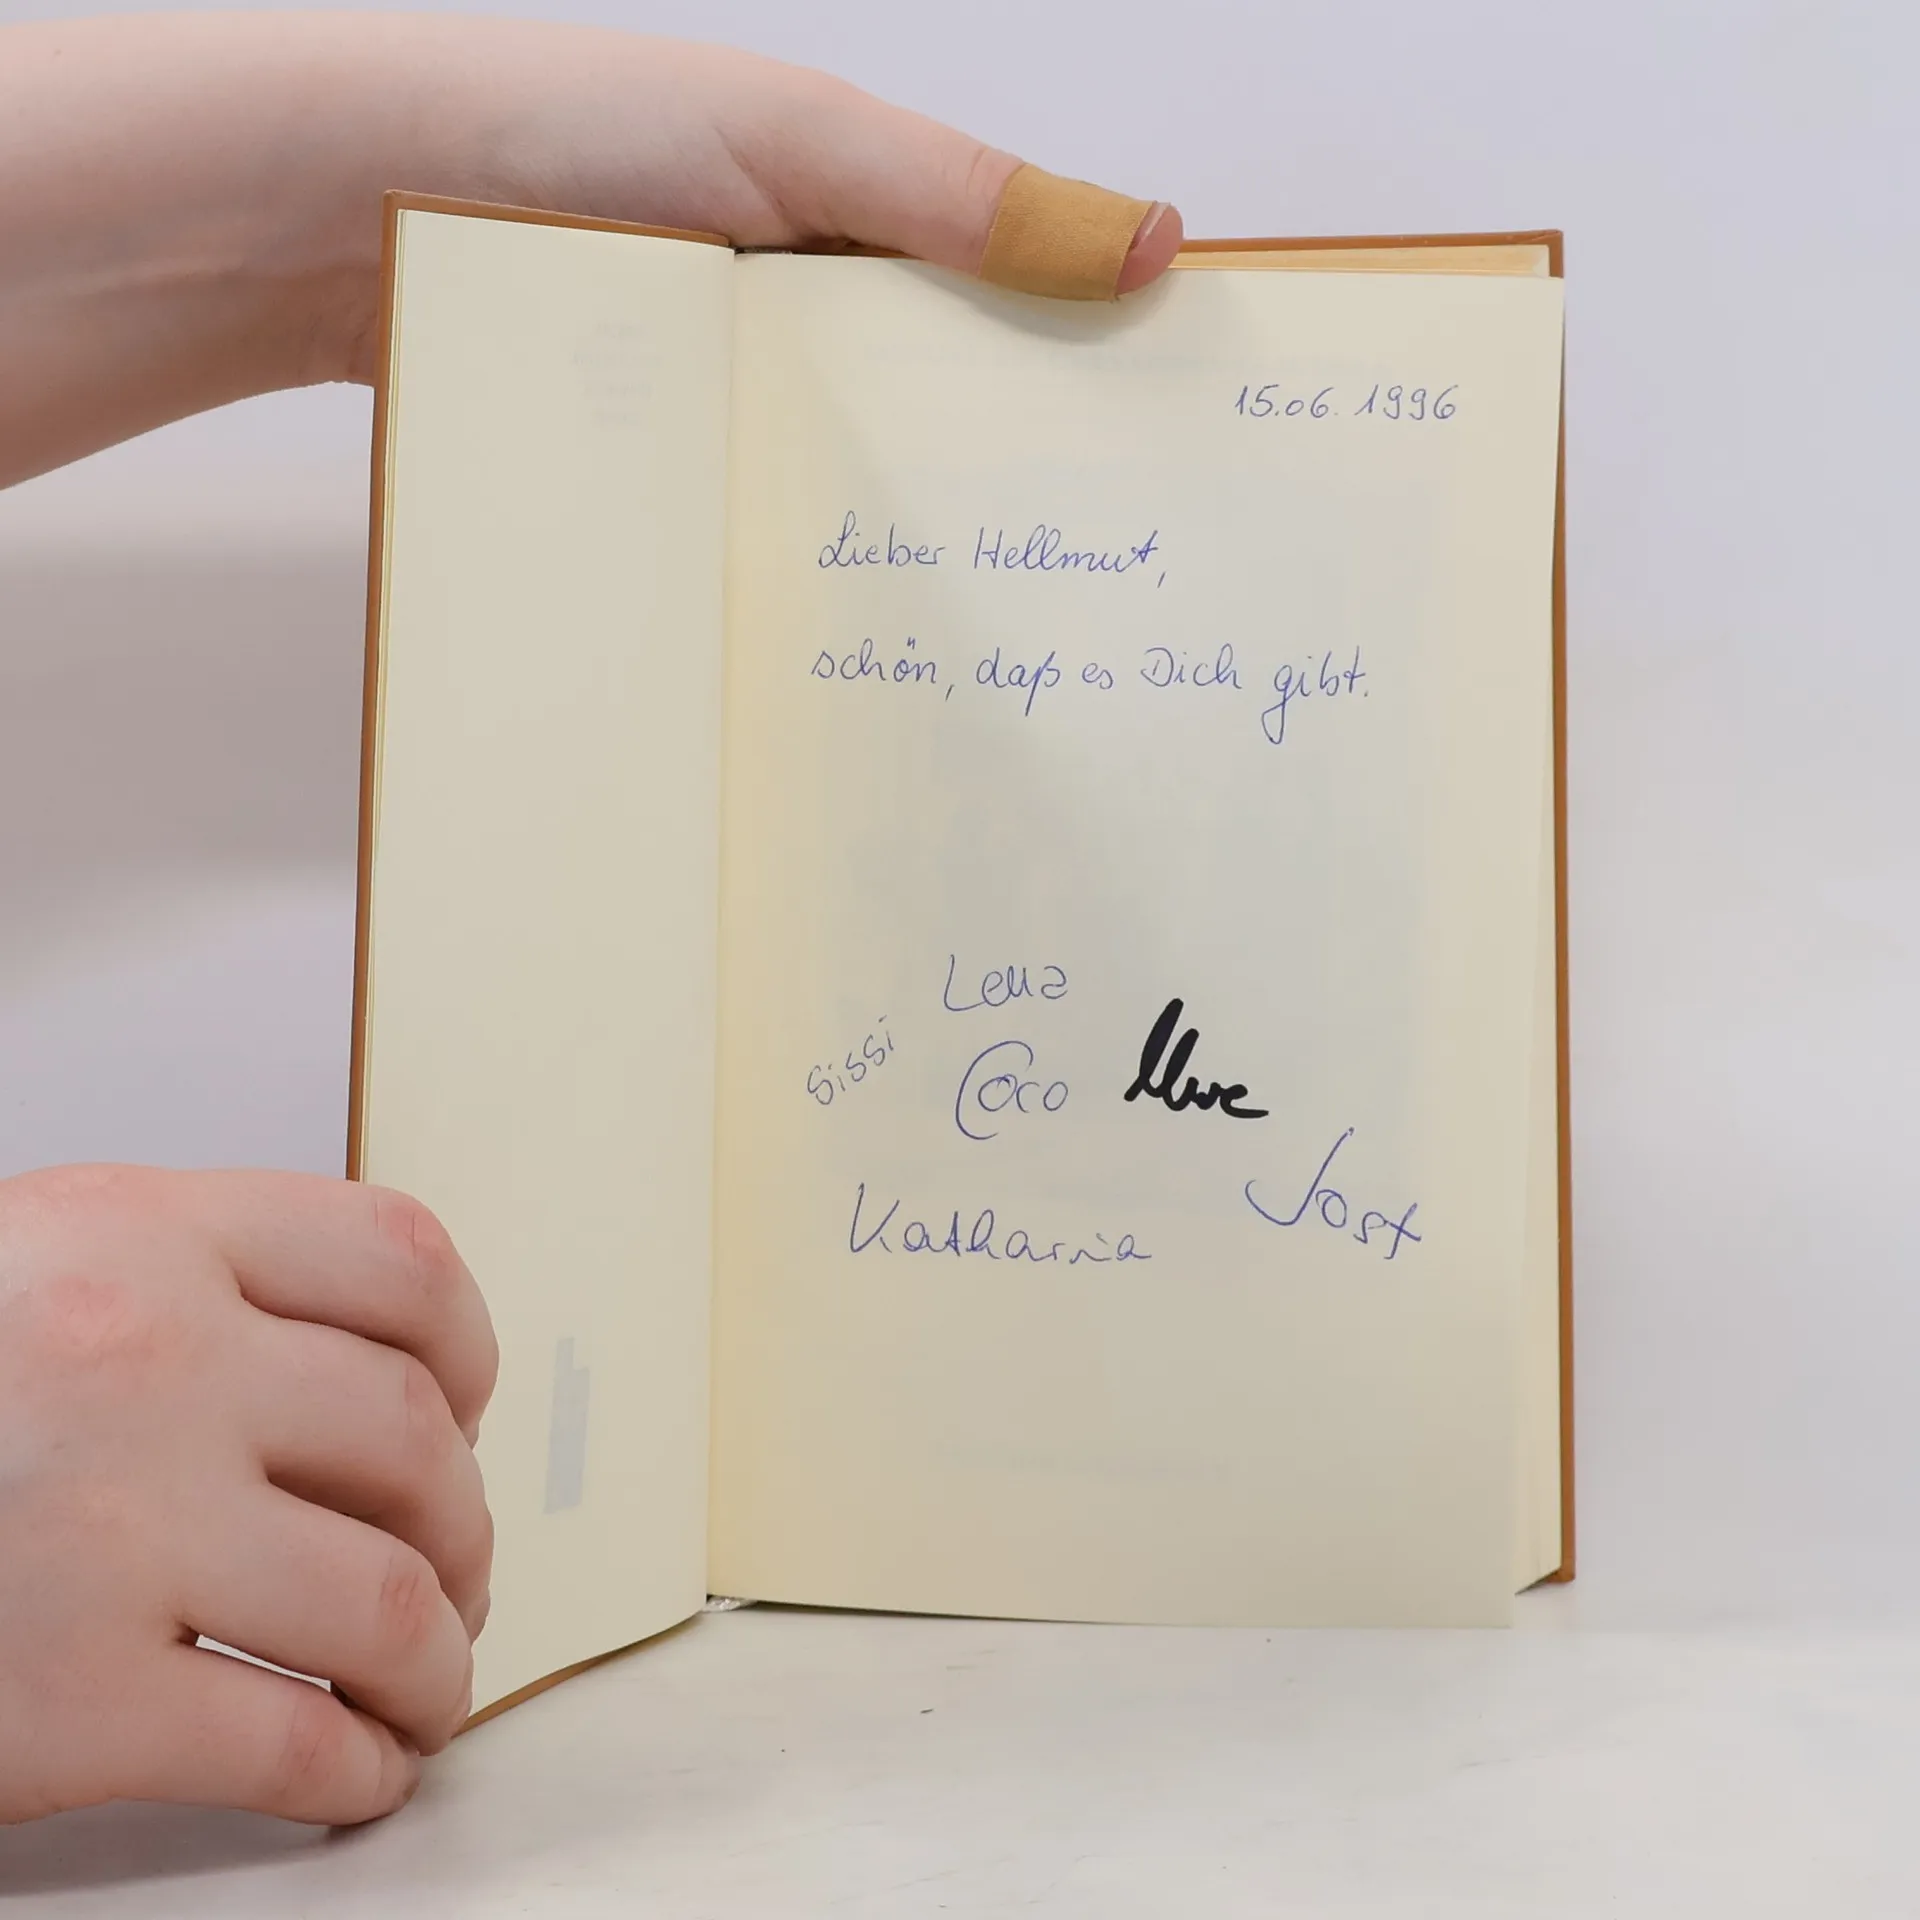 15.06.1996
Lieber Hellmut,
schön, daß es Dich gibt.
Lena
Sissi
Coco
Uwe
Jost
Katharina